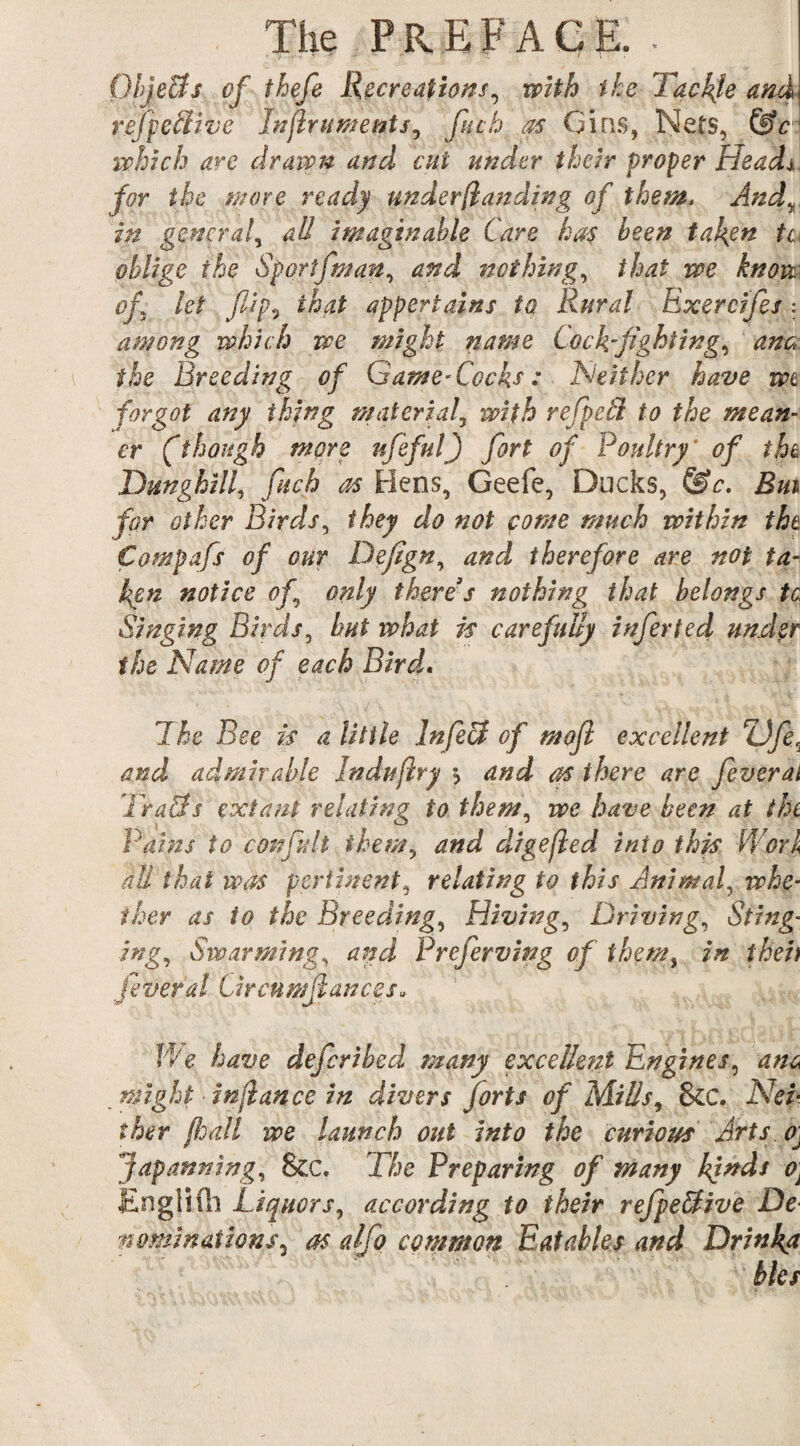 The PREFACE.
Objects of theſe Recreations, with the Tackle and
reſpective Inſtruments, ſuch as Gins, Nets, &c
which are drawn and cut under their proper Heads
for the more ready underſtanding of them. And,
in general, all imaginable Care has been taken to
oblige the Sportſman, and nothing, that we know
of, let ſlip, that appertains to Rural Exerciſes:
among which we might name Cock-fighting, and
the Breeding of Game-Cocks: Neither have we
forgot any thing material, with reſpect to the mean-
er (though more uſeful) ſort of Poultry of the
Dunghill, ſuch as Hens, Geeſe, Ducks, &c. But
for other Birds, they do not come much within the
Compaſs of our Deſign, and therefore are not ta-
ken notice of, only there's nothing that belongs to
Singing Birds, but what is carefully inſerted under
the Name of each Bird.
The Bee is a little Inſect of moſt excellent Uſe,
and admirable Induſtry; and as there are ſeveral
Tracts extant relating to them, we have been at the
Pains to conſult them, and digeſted into this Work
all that was pertinent, relating to this Animal, whe-
ther as to the Breeding, Hiving, Driving, Sting-
ing, Swarming, and Preſerving of them, in their
ſeveral Circumſtances.
We have deſcribed many excellent Engines, and
might inſtance in divers ſorts of Mills, &c. Nei-
ther ſhall we launch out into the curious Arts of
Japanning, &c. The Preparing of many kinds of
Engliſh Liquors, according to their reſpective De-
nominations, as alſo common Eatables and Drinka
bles